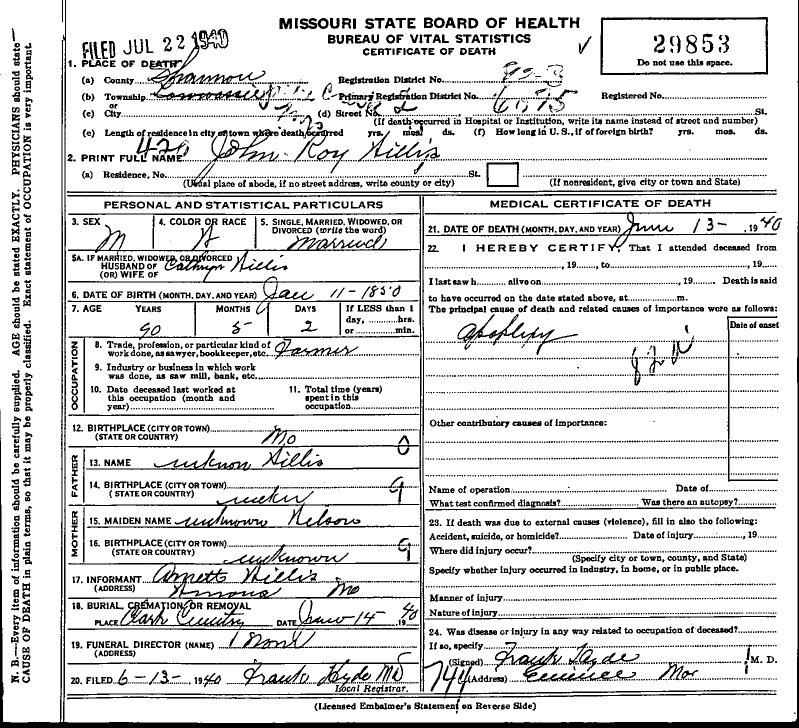 MISSOURI STATE BOARD OF HEALTH
BUREAU OF VITAL STATISTICS
CERTIFICATE OF DEATH
FILED JUL 22 1940
29853
Do not use this space.
1. PLACE OF DEATH
(a) County Shannon Registration District No.
(b) Township Primary Registration District No. Registered No.
or
(c) City (d) Street No. St.
(If death occurred in Hospital or Institution, write its name instead of street and number)
(e) Length of residence in city or town where death occurred yrs. mos. ds. (f) How long in U. S., if of foreign birth? yrs. mos. ds.
2. PRINT FULL NAME 420 John Roy Hillis
(a) Residence, No. St.
(Usual place of abode, if no street address, write county or city) (If nonresident, give city or town and State)
PERSONAL AND STATISTICAL PARTICULARS
3. SEX 4. COLOR OR RACE 5. SINGLE, MARRIED, WIDOWED, OR
DIVORCED (write the word)
M W Married
5A. IF MARRIED, WIDOWED, OR DIVORCED
HUSBAND OF Cathryn Hillis
(OR) WIFE OF
6. DATE OF BIRTH (MONTH, DAY, AND YEAR) Jan 11-1850
7. AGE YEARS MONTHS DAYS If LESS than 1
day, hrs.
or min.
90 5 2
OCCUPATION
8. Trade, profession, or particular kind of
work done, as sawyer, bookkeeper, etc. Farmer
9. Industry or business in which work
was done, as saw mill, bank, etc.
10. Date deceased last worked at
this occupation (month and
year)
11. Total time (years)
spent in this
occupation
12. BIRTHPLACE (CITY OR TOWN)
(STATE OR COUNTRY) Mo 0
FATHER
13. NAME unknon Hillis
14. BIRTHPLACE (CITY OR TOWN) 9
(STATE OR COUNTRY)
MOTHER
15. MAIDEN NAME unknown Nelson
16. BIRTHPLACE (CITY OR TOWN) 9
(STATE OR COUNTRY) unknown
17. INFORMANT Arnett Hillis
(ADDRESS) Mo
18. BURIAL, CREMATION OR REMOVAL
PLACE Clark DATE June 14 1940
19. FUNERAL DIRECTOR (NAME) None
(ADDRESS)
20. FILED 6-13- 1940 Frank Hyde MD
Local Registrar.
MEDICAL CERTIFICATE OF DEATH
21. DATE OF DEATH (MONTH, DAY, AND YEAR) June 13- 1940
22. I HEREBY CERTIFY, That I attended deceased from
, 19 , to , 19
I last saw h alive on , 19 Death is said
to have occurred on the date stated above, at m.
The principal cause of death and related causes of importance were as follows:
Date of onset
Other contributory causes of importance:
Name of operation Date of
What test confirmed diagnosis? Was there an autopsy?
23. If death was due to external causes (violence), fill in also the following:
Accident, suicide, or homicide? Date of injury , 19
Where did injury occur?
(Specify city or town, county, and State)
Specify whether injury occurred in industry, in home, or in public place.
Manner of injury
Nature of injury
24. Was disease or injury in any way related to occupation of deceased?
If so, specify
(Signed) Frank Hyde M. D.
744 (Address) Eminence Mo
(Licensed Embalmer's Statement on Reverse Side)
N. B.—Every item of information should be carefully supplied. AGE should be stated EXACTLY. PHYSICIANS should state
CAUSE OF DEATH in plain terms, so that it may be properly classified. Exact statement of OCCUPATION is very important.